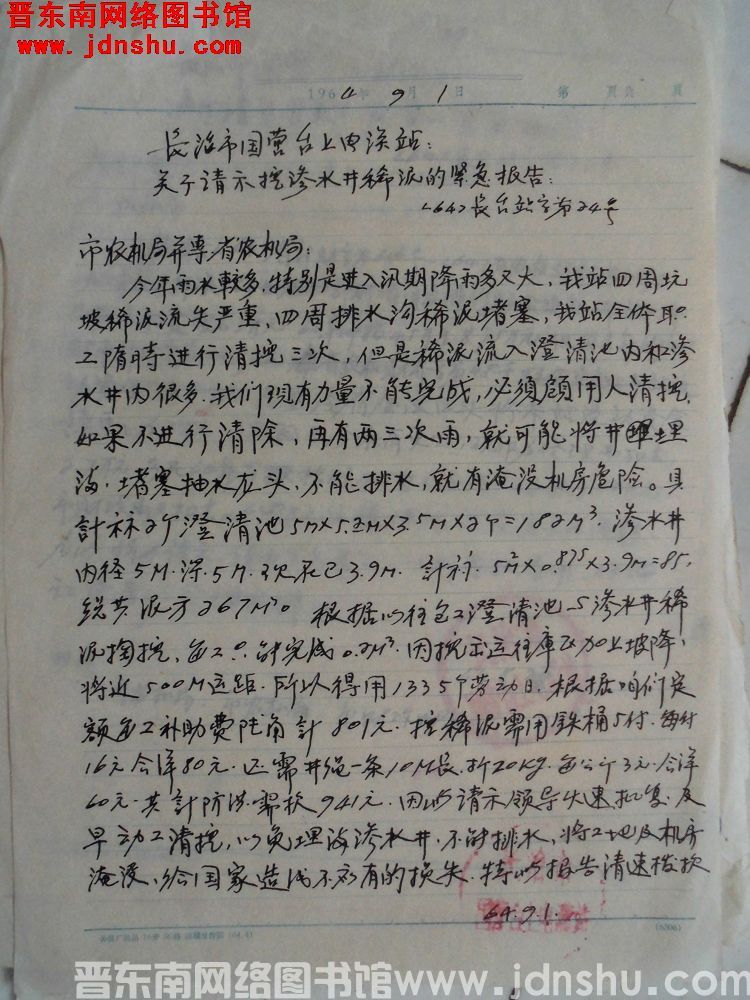 晋东南网络图书馆
www.jdnshu.com
1964年9月1日 第 页共 页
长治市国营台上电渓站:
关于请示挖渗水井稀泥的紧急报告:
<64>长台站字第24号
市农机局并專、省农机局:
今年雨水較多,特别是进入汛期降雨多又大,我站四周坑
坡稀泥流失严重,四周排水沟稀泥堵塞,我站全体职
工随時进行清挖三次,但是稀泥流入澄清池内和渗
水井内很多.我们现有力量不能完成,必須顧用人清挖.
如果不进行清除,再有两三次雨,就可能将井埋
满.堵塞抽水龙头,不能排水,就有淹没机房危险。具
計 2个澄清池5m×5.2M×3.5M×2个=182M³.渗水井
内径5M.深.5M. 3.9M. 計 5²M×0.875×3.9M=85,
总共泥方267M³。根据以往包工澄清池与渗水井稀
泥掏挖,每工只能完成0.2M³.因挖出运往库区加上坡降,
将近500M远距.所以得用1335个劳动日.根据咱们定
额每工补助费陆角計801元.挖稀泥需用鉄桶5付.每付
16元合洋80元.还需井绳一条10M长.折20kg.每公斤3元.合洋
60元.共計防洪需款941元.因此请示领导火速批复.及
早动工清挖,以免埋没渗水井.不能排水,将工地及机房
淹没,给国家造成不应有的损失.特此报告清速拨款
64.9.1.
晋东南网络图书馆 www.jdnshu.com